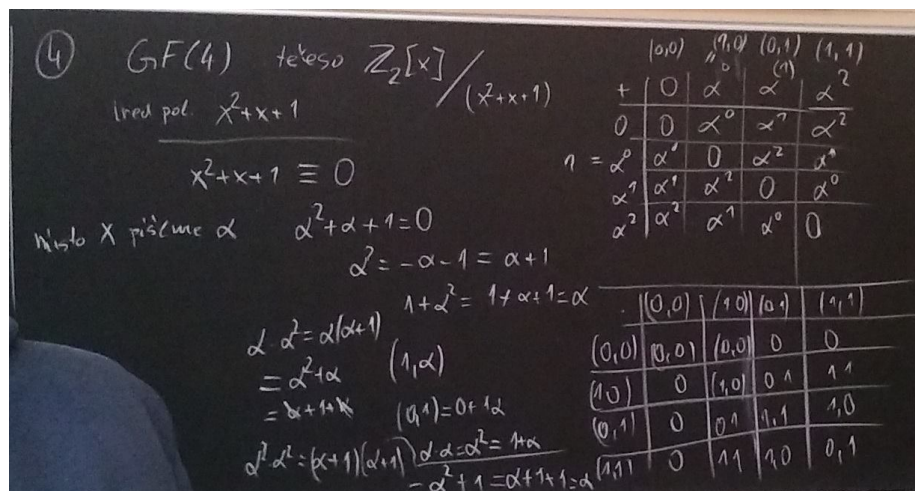 4 GF(4) těleso Z₂[x]/(x²+x+1)
ired pol. x²+x+1
x²+x+1 ≡ 0
místo X píšeme α α²+α+1=0
α²= -α-1 = α+1
1+α² = 1+α+1=α
α·α²=α(α+1)
=α²+α (1,α)
=α+1+α (0,1)=0+1α
α²·α²=(α+1)(α+1) α·α=α²=1+α
=α²+1=α+1+1=α
(0,0) (1,0) (0,1) (1,1)
+ 0 α⁰ α¹ α²
0 0 α⁰ α¹ α²
1 = α⁰ α⁰ 0 α² α¹
α¹ α¹ α² 0 α⁰
α² α² α¹ α⁰ 0
· (0,0) (1,0) (0,1) (1,1)
(0,0) (0,0) (0,0) 0 0
(1,0) 0 (1,0) 0 1 1 1
(0,1) 0 0 1 1,1 1,0
(1,1) 0 1 1 1,0 0,1